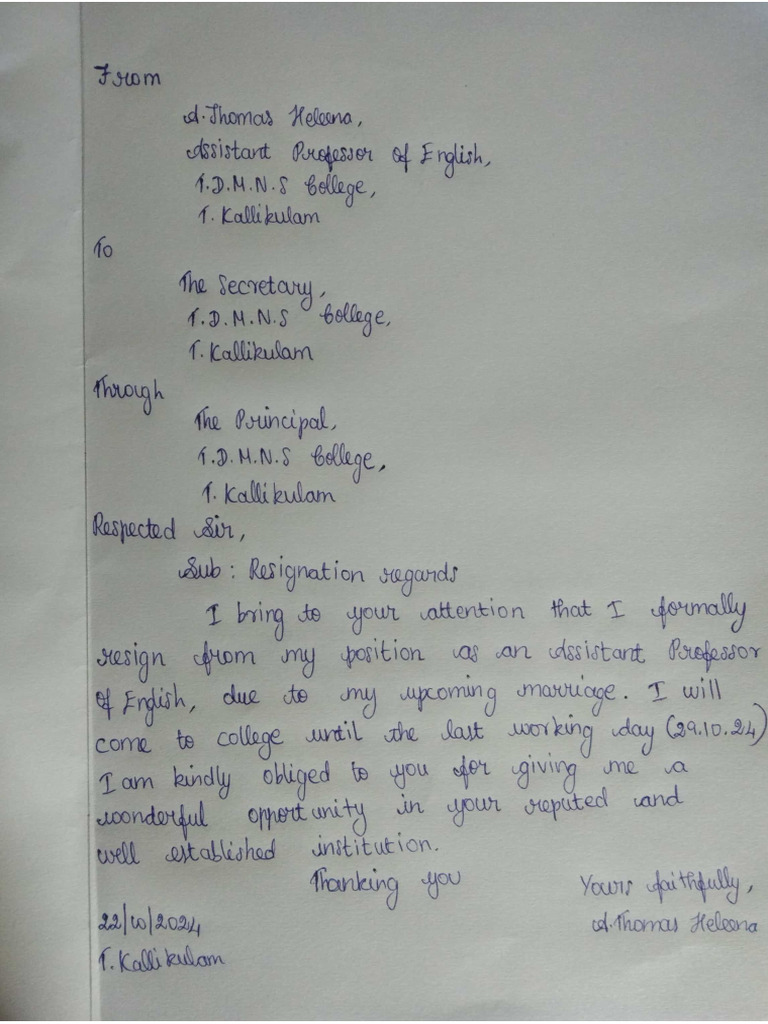 From
A. Thomas Heleena,
Assistant Professor of English,
T.D.M.N.S College,
T. Kallikulam
To
The Secretary,
T.D.M.N.S College,
T. Kallikulam
Through
The Principal,
T.D.M.N.S College,
T. Kallikulam
Respected Sir,
Sub : Resignation regards
I bring to your attention that I formally
resign from my position as an Assistant Professor
of English, due to my upcoming marriage. I will
come to college until the last working day (29.10.24)
I am kindly obliged to you for giving me a
wonderful opportunity in your reputed and
well established institution.
Thanking you
Yours faithfully,
22/10/2024
A. Thomas Heleena
T. Kallikulam